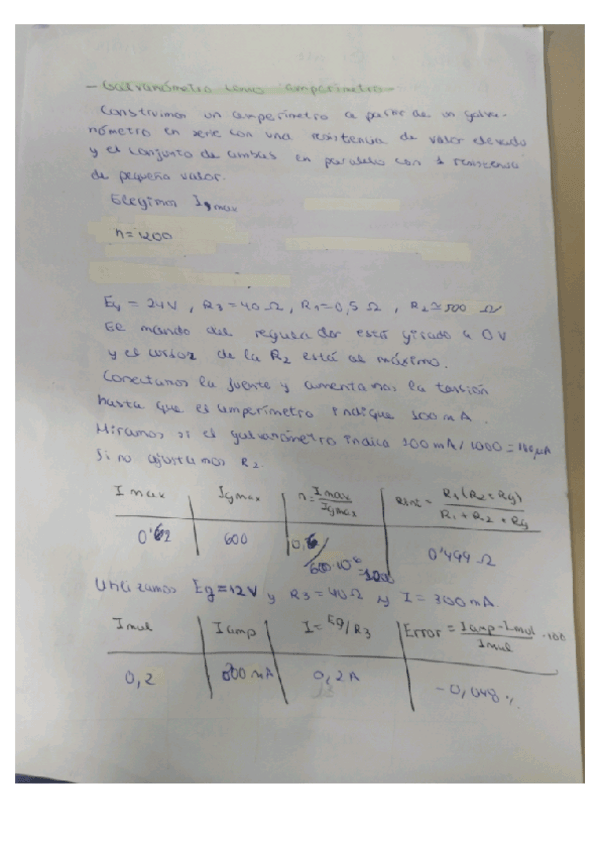 - Galvanómetro como amperímetro -
Construimos un amperímetro a partir de un galva-
nómetro en serie con una resistencia de valor elevado
y el conjunto de ambas en paralelo con 1 resistencia
de pequeño valor.
Elegimos Igmax
n=1200
Eg = 24V , R3 = 40 Ω, R1 = 0,5 Ω , R2 ≈ 500 Ω
El mando del regulador está girado a 0 V
y el cursor de la R2 está al máximo.
Conectamos la fuente y aumentamos la tensión
hasta que el amperímetro indique 300 mA.
Miramos si el galvanómetro indica 300 mA/1000 =
Si no ajustamos R2.
I max | Igmax | n = Imax/Igmax | = R1(R2+Rg)/R1+R2+Rg
0'62 | 600 | 0,6/600·10⁻⁶ = 1200 | 0'499 Ω
Utilizamos Eg = 12V y R3 = 40Ω y I = 300 mA.
Imul | Iamp | I = Eg/R3 | Error = Iamp - Imul/Imul · 100
0,2 | 200 mA | 0,2 A | - 0,048 %